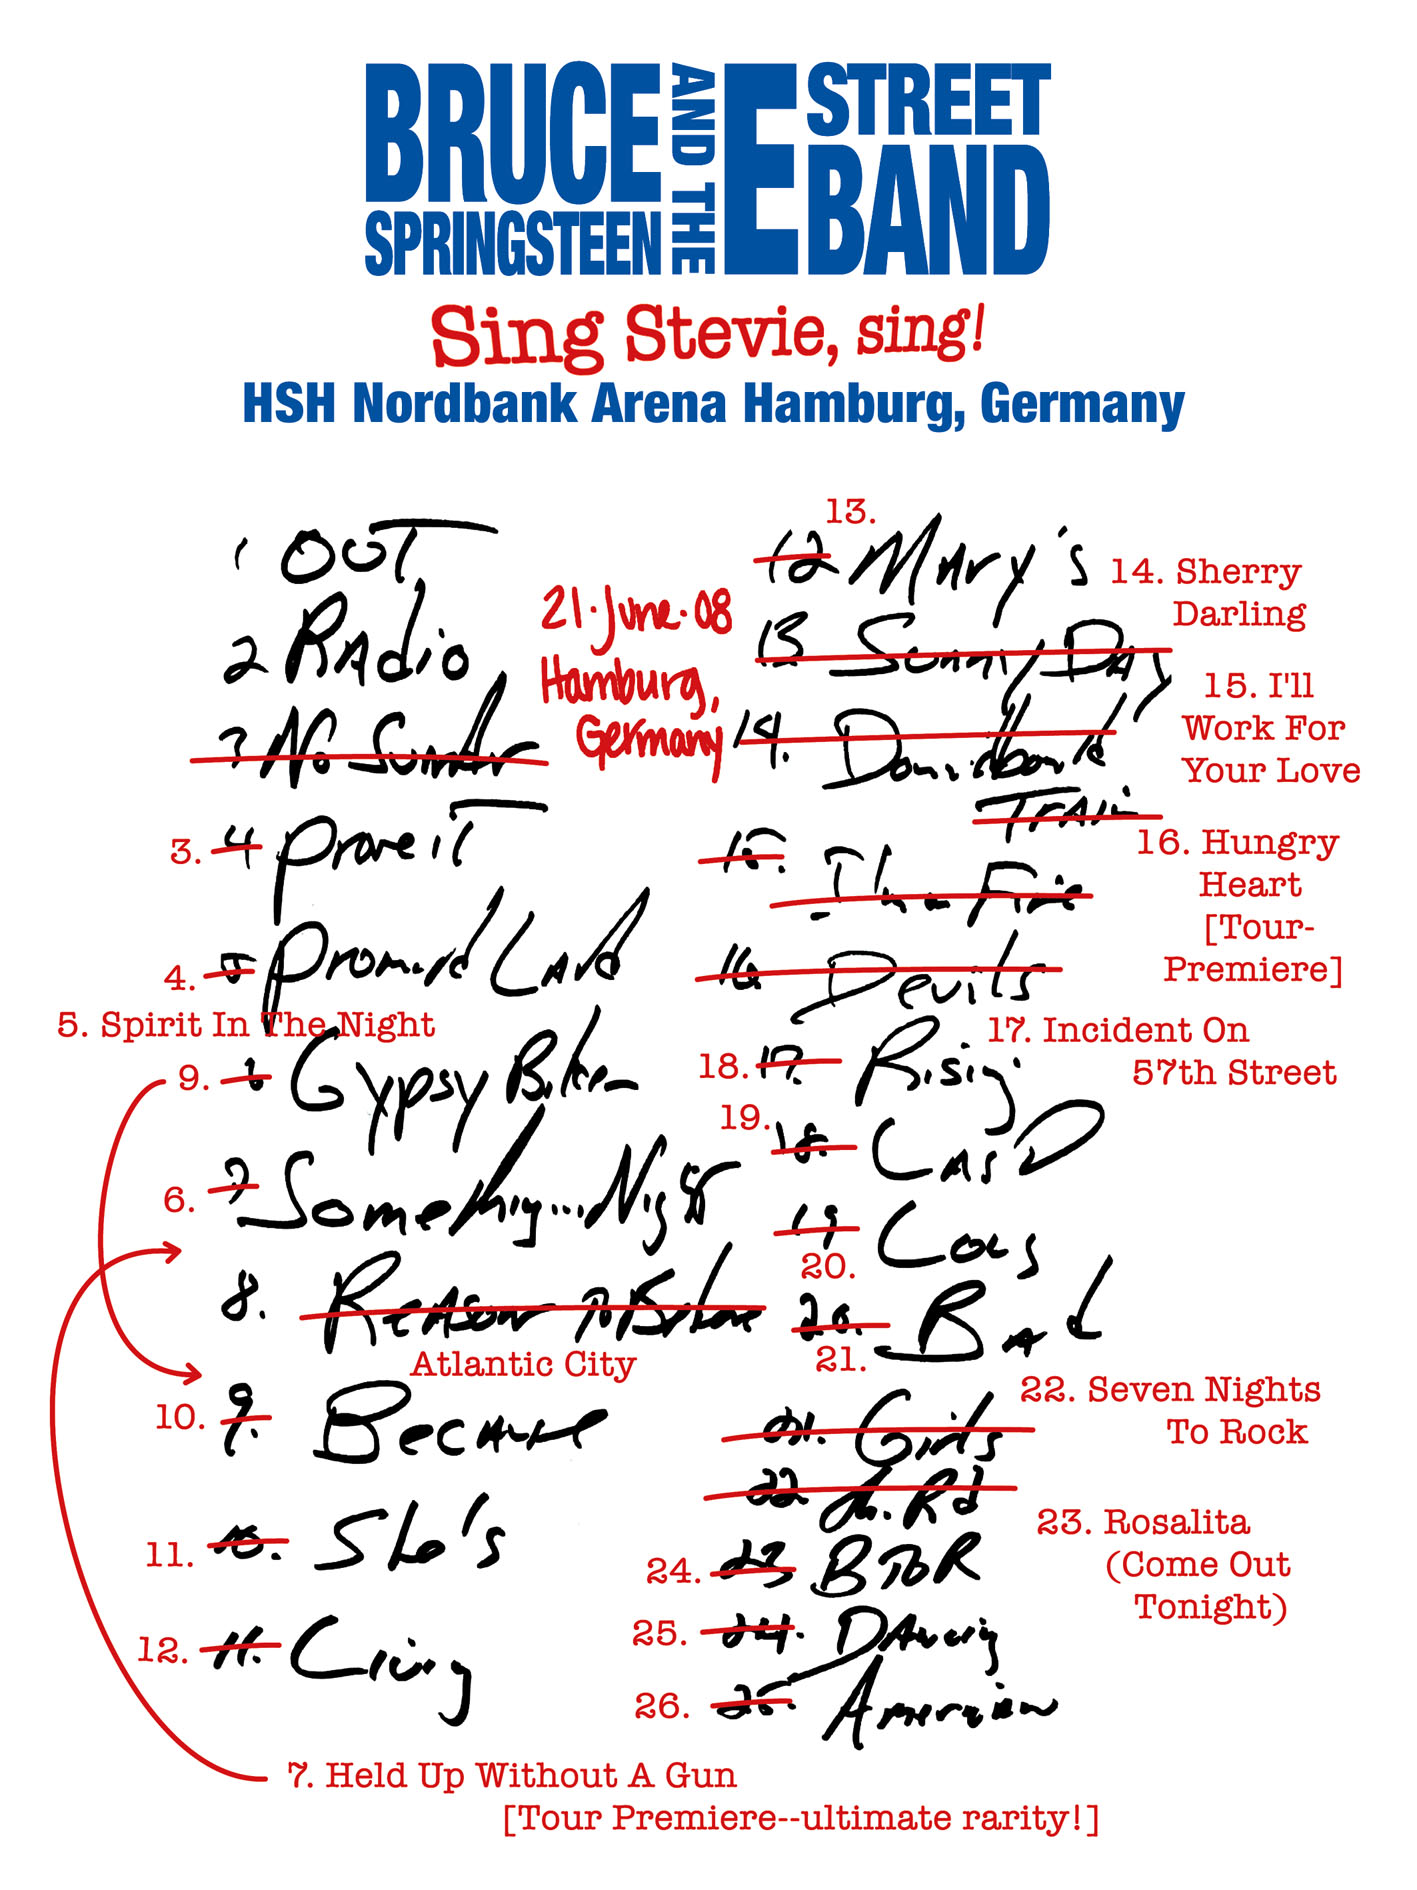 BRUCE
SPRINGSTEEN
AND THE
E STREET
BAND
Sing Stevie, sing!
HSH Nordbank Arena Hamburg, Germany
21·June·08
Hamburg,
Germany
1 OUT
2 RAdio
3 No Surrender
3. 4 Prove iT
4. 5 Promised LAnd
5. Spirit In The Night
9. 6 Gypsy Biker
6. 7 Something...Night
8. REASON To Believe
Atlantic City
10. 9. BECAUSE
11. 10. She's
12. 11. Living
7. Held Up Without A Gun
[Tour Premiere--ultimate rarity!]
13.
12 MAry's
14. Sherry
Darling
13 Sunny DAy
15. I'll
Work For
Your Love
14. Downbound
TrAin
16. Hungry
Heart
[Tour-
Premiere]
15. I'm On Fire
16. Devils
17. Incident On
57th Street
18. 17. Rising
19.
18. LAsT D
19 Long
20.
20. BAd
21.
22. Seven Nights
To Rock
21. Girls
22. Th. Rd
23. Rosalita
(Come Out
Tonight)
24. 23 BToR
25. 24. DAncing
26. 25. AmericAn